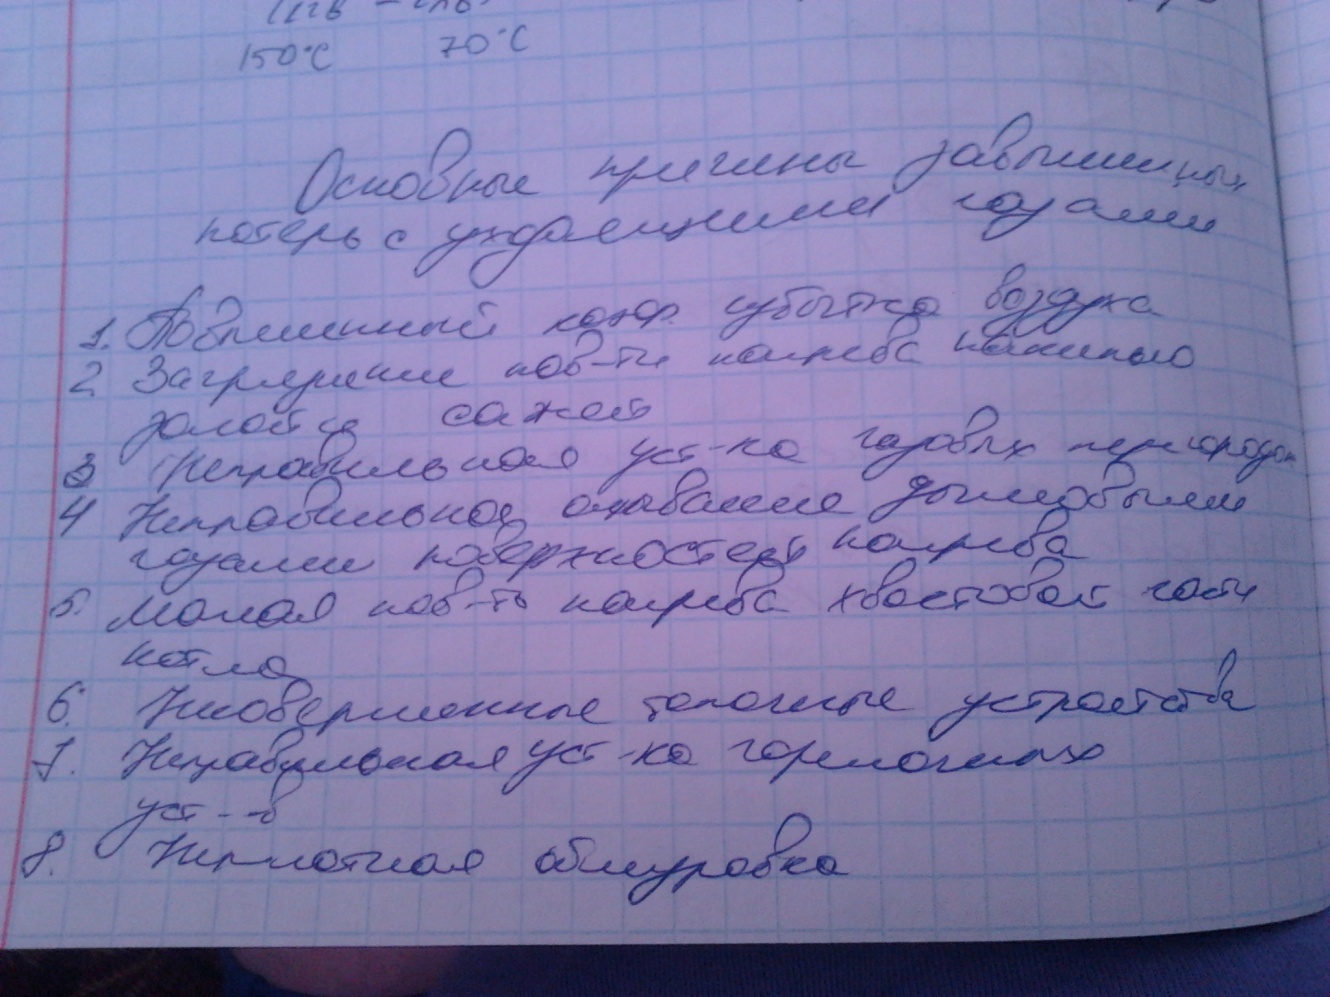 150°C 70°C
Основные причины завышенных
потерь с уходящими газами
1. Повышенный коэф. избытка воздуха
2 Загрязнение пов-ти нагрева накипью
золой и сажей
3 Неправильная уст-ка газовых перегородок
4 Неправильное омывание дымовыми
газами поверхностей нагрева
5. Малая пов-ть нагрева хвостовой части
котла
6. Несовершенные топочные устройства
7. Неправильная уст-ка горелочных
уст--в
8. Неплотная обмуровка